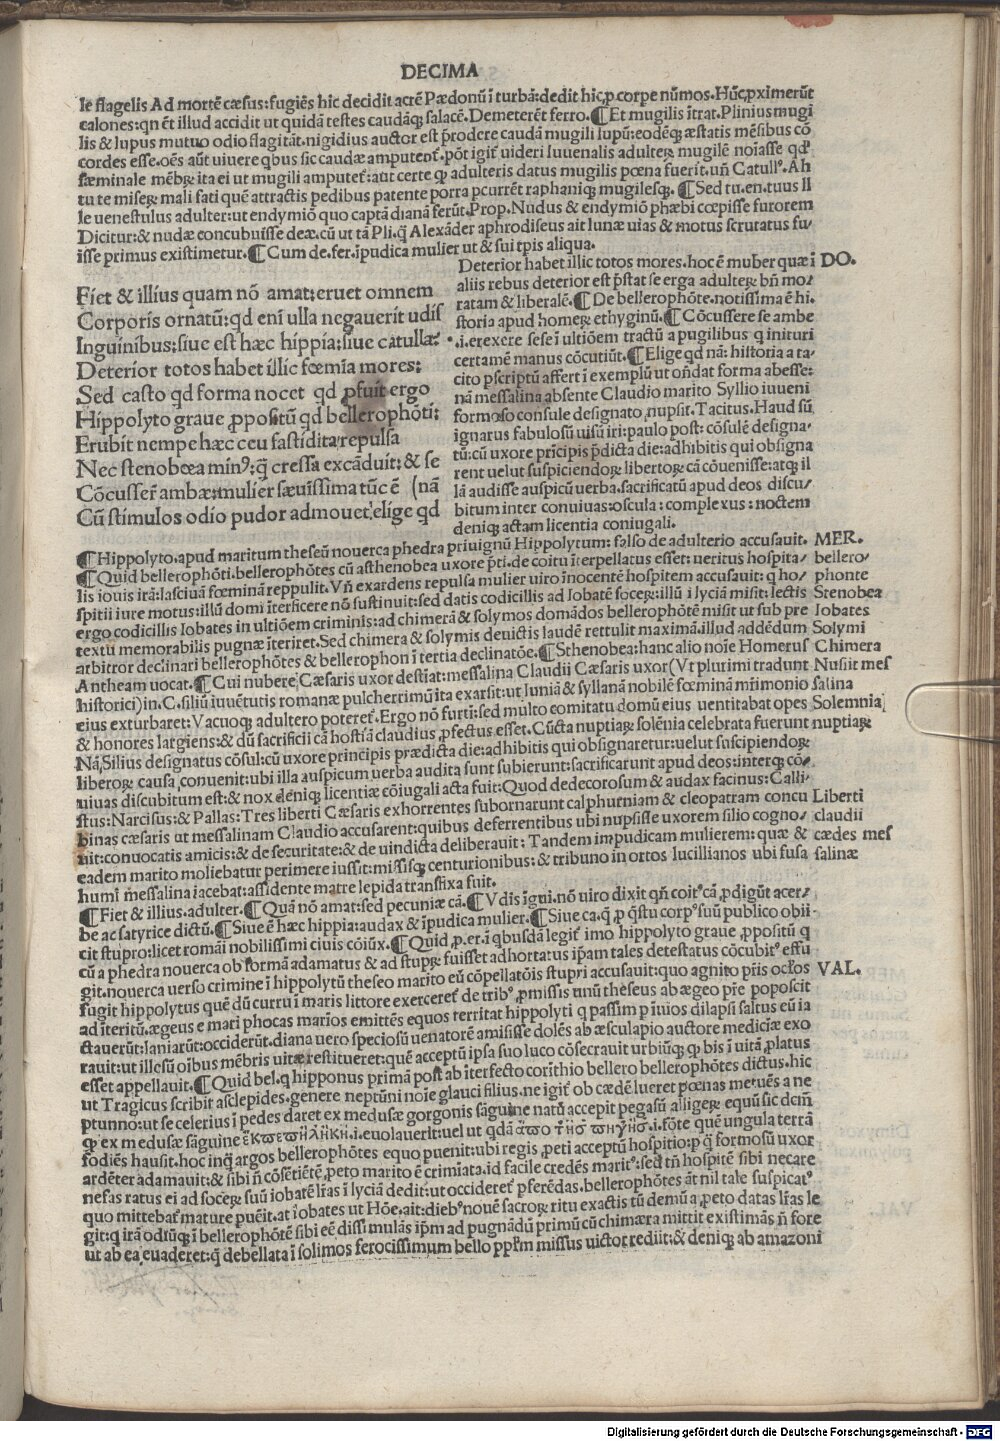 DECIMA
le flagelis Ad mortē cæsus:fugiēs hic decidit acrē Pædonū ī turbā:dedit hic,p corpe nūmos.Hūc,pximerūt
calones:qn ēt illud accidit ut quidā testes caudāq; salacē.Demeterēt ferro.¶Et mugilis ītrat.Plinius mugi
lis & lupus mutuo odio flagitāt.nigidius auctor est p̄rodere caudā mugili lupū:eodēq; æstatis mēsibus cō
cordes esse.oēs aūt uiuere qbus sic caudæ amputent̄.pōt igit̄ uideri Iuuenalis adulteꝝ mugilē noiasse qd'
fæminale mēbꝝ ita ei ut mugili amputet̄:aut certe ꝙ adulteris datus mugilis pœna fuerit.uñ Catull⁹.Ah
tu te miseꝝ mali fati quē attractis pedibus patente porra pcurrēt raphaniq; mugilesq;.¶Sed tu.en.tuus il
le uenestulus adulter:ut endymiō quo captā dianā ferūt.Prop.Nudus & endymiō phæbi cœpisse furorem
Dicitur:& nudæ concubuisse deæ.cū ut tā Pli.q̄ Alexāder aphrodiseus ait lunæ uias & motus scrutatus fu/
isse primus existimetur.¶Cum de.fer.īpudica mulier ut & sui tpis aliqua.
Fiet & illius quam nō amat:eruet omnem
Corporis ornatū:qd enī ulla negauerit udis
Inguinibus:siue est hæc hippia:siue catulla:
Deterior totos habet illic fœmīa mores:
Sed casto qd forma nocet qd pfuit ergo
Hippolyto graue ,ppositū qd bellerophōti:
Erubit nempe hæc ceu fastidita repulsa
Nec stenobœa min⁹:q̄ cressa excāduit:& se
Cōcusser̄ ambæ:mulier sæuissima tūc ē (nā
Cū stimulos odio pudor admouet.elige qd
Deterior habet illic totos mores.hoc ē muber quæ ī DO.
aliis rebus deterior est p̄stat se erga adulteꝝ bñ mo/
ratam & liberalē.¶De bellerophōte.notissima ē hi.
storia apud homeꝝ et hyginū.¶Cōcussere se ambe
.i.erexere sese ī ultiōem tractū a pugilibus q inituri
certamē manus cōcutiūt.¶Elige qd nā: historia a ta-
cito pscriptū affert ī exemplū ut oñdat forma abesse:
nā messalina absente Claudio marito Syllio iuueni
formoso consule designato ,nupsit.Tacitus.Haud sū
ignarus fabulosū uisū iri:paulo post: cōsulē designa-
tū:cū uxore prīcipis p̄dicta die:adhibitis qui obsigna
rent uelut suspiciendoꝝ libertoꝝ cā cōuenisse:atq; il
lā audisse auspicū uerba.sacrificatū apud deos discu/
bitum inter conuiuas:oscula : complexus : noctem
deniq; actam licentia coniugali.
¶Hippolyto.apud maritum theseū nouerca phedra priuignū Hippolytum: falso de adulterio accusauit. MER.
¶Quid bellerophōti.bellerophōtes cū asthenobea uxore p̄ti.de coitu īterpellatus esset: ueritus hospita/ bellero/
lis iouis irā: lasciuā fœminā reppulit.Vñ exardens repulsa mulier uiro īnocentē hospitem accusauit: q ho/ phonte
spitii iure motus:illū domi īterficere nō sustinuit:sed datis codicillis ad Iobatē soceꝝ:illū ī lyciā misit: lectis Stenobea
ergo codicillis Iobates in ultiōem criminis:ad chimerā & solymos domādos bellerophōtē misit ut sub pre Iobates
textu memorabilis pugnæ īteriret.Sed chimera & solymis deuictis laudē rettulit maximā.illud addēdum Solymi
arbitror declinari bellerophōtes & bellerophon ī tertia declinatōe.¶Sthenobea:hanc alio noīe Homerus Chimera
Antheam uocat.¶Cui nubere Cæsaris uxor destīat:messalina Claudii Cæsaris uxor(Vt plurimi tradunt Nusiit mes
historici)in.C.siliū iuuētutis romanæ pulcherrimū ita exarsit:ut Iuniā & syllanā nobilē fœminā mr̄imonio salina
eius exturbaret: Vacuoq; adultero poteret̄.Ergo nō furti:sed multo comitatu domū eius uentitabat opes Solemnia
& honores largiens:& dū sacrificii cā hostiā claudius ,pfectus esset.Cūcta nuptiaꝝ solēnia celebrata fuerunt nuptiaꝝ
Nā,Silius designatus cōsul:cū uxore principis prædicta die:adhibitis qui obsignaretur:uelut suscipiendoꝝ
liberoꝝ causa conuenit:ubi illa auspicum uerba audita sunt subierunt:sacrificarunt apud deos:interq; cō/
uiuas discubitum est:& nox deniq; licentiæ cōiugali acta fuit:Quod dedecorosum & audax facinus:Calli/
stus:Narcisus:& Pallas:Tres liberti Cæsaris exhorrentes subornarunt calphurniam & cleopatram concu Liberti
binas cæsaris ut messalinam Claudio accusarent:quibus deferrentibus ubi nupsisse uxorem silio cogno/ claudii
uit:conuocatis amicis:& de securitate:& de uindicta deliberauit: Tandem impudicam mulierem: quæ & cædes mes
eadem marito moliebatur perimere iussit:missisq; centurionibus:& tribuno in ortos lucillianos ubi fusa salinæ
humi messalina iacebat:assidente matre lepida transfixa fuit.
¶Fiet & illius.adulter.¶Quā nō amat:sed pecuniæ cā.¶Vdis īgui.nō uiro dixit qñ coit⁹ cā ,pdigūt acer/
be ac satyrice dictū.¶Siue ē hæc hippia:audax & īpudica mulier.¶Siue ca.q ,p q̄stu corp⁹ suū publico obii-
cit stupro:licet romāi nobilissimi ciuis cōiūx.¶Quid ,p.er.ī qbusdā legit̄ imo hippolyto graue ,ppositū q
cū a phedra nouerca ob formā adamatus & ad stupꝝ fuisset adhortatus ip̄am tales detestatus cōcubit⁹ effu
git.nouerca uerso crimine ī hippolytū theseo marito eū cōpellatōis stupri accusauit:quo agnito pr̄is oc̄ios VAL.
fugit hippolytus quē dū curru ī maris littore exerceret̄ de trib⁹ ,pmissis unū theseus ab ægeo pr̄e poposcit
ad īteritū.ægeus e mari phocas marīos emittēs equos territat hippolyti q passim p īuios dilapsi saltus eū ia
ctauerūt:laniarūt:occiderūt.diana uero speciosū uenatorē amisisse dolēs ab æsculapio auctore mediciæ exo
rauit:ut illesū oībus mēbris uitæ restitueret:quē acceptū ipsa suo luco cōsecrauit urbiūq; ꝙ bis ī uitā ,platus
esset appellauit.¶Quid bel.q hipponus primā post ab īterfecto corīthio bellero bellerophōtes dictus.hic
ut Tragicus scribit asclepides.genere neptūni noīe glauci filius.ne igit̄ ob cædē lueret pœnas metuēs a ne
ptunno:ut se celerius ī pedes daret ex medusæ gorgonis sāguine natū accepit pegasū alligeꝝ equū sic dcīm
ꝙ ex medusæ sāguine […] .i.euolauerit:uel ut qdā […] .i.fōte quē ungula terrā
fodiēs hausit.hoc inq̄ argos bellerophōtes equo puenit:ubi regis ,peti acceptū hospitio:p q̄ formosū uxor
ardēter adamauit:& sibi ñ cōsētiētē ,peto marito ē crimīata.id facile credēs marit⁹:sed tñ hospitē sibi necare
nefas ratus ei ad soceꝝ suū iobatē lr̄as ī lyciā dedit:ut occideret̄ pferēdas.bellerophōtes āt nil tale suspicat⁹
quo mittebat̄ mature puēit.at iobates ut Hōe.ait:dieb⁹ nouē sacroꝝ ritu exactis tū demū a ,peto datas lr̄as le
git:q irā odiūq; ī bellerophōtē sibi eē dissimulās ip̄m ad pugnādū primū cū chimæra mittit existimās ñ fore
ut ab ea euaderet:q̄ debellata ī solimos ferocissimum bello pp̄lm missus uictor rediit:& deniq; ab amazoni
Digitalisierung gefördert durch die Deutsche Forschungsgemeinschaft - DFG